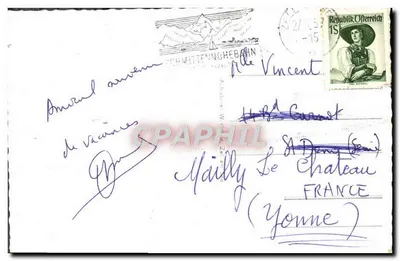 SCHMITTENHÖHEBAHN
Republik Österreich
1S
Amical souvenir
de vacances
Mlle Vincent
4 Bd Carnot
St Denis (Seine)
Mailly Le Chateau
FRANCE
(Yonne)
CPAPHIL